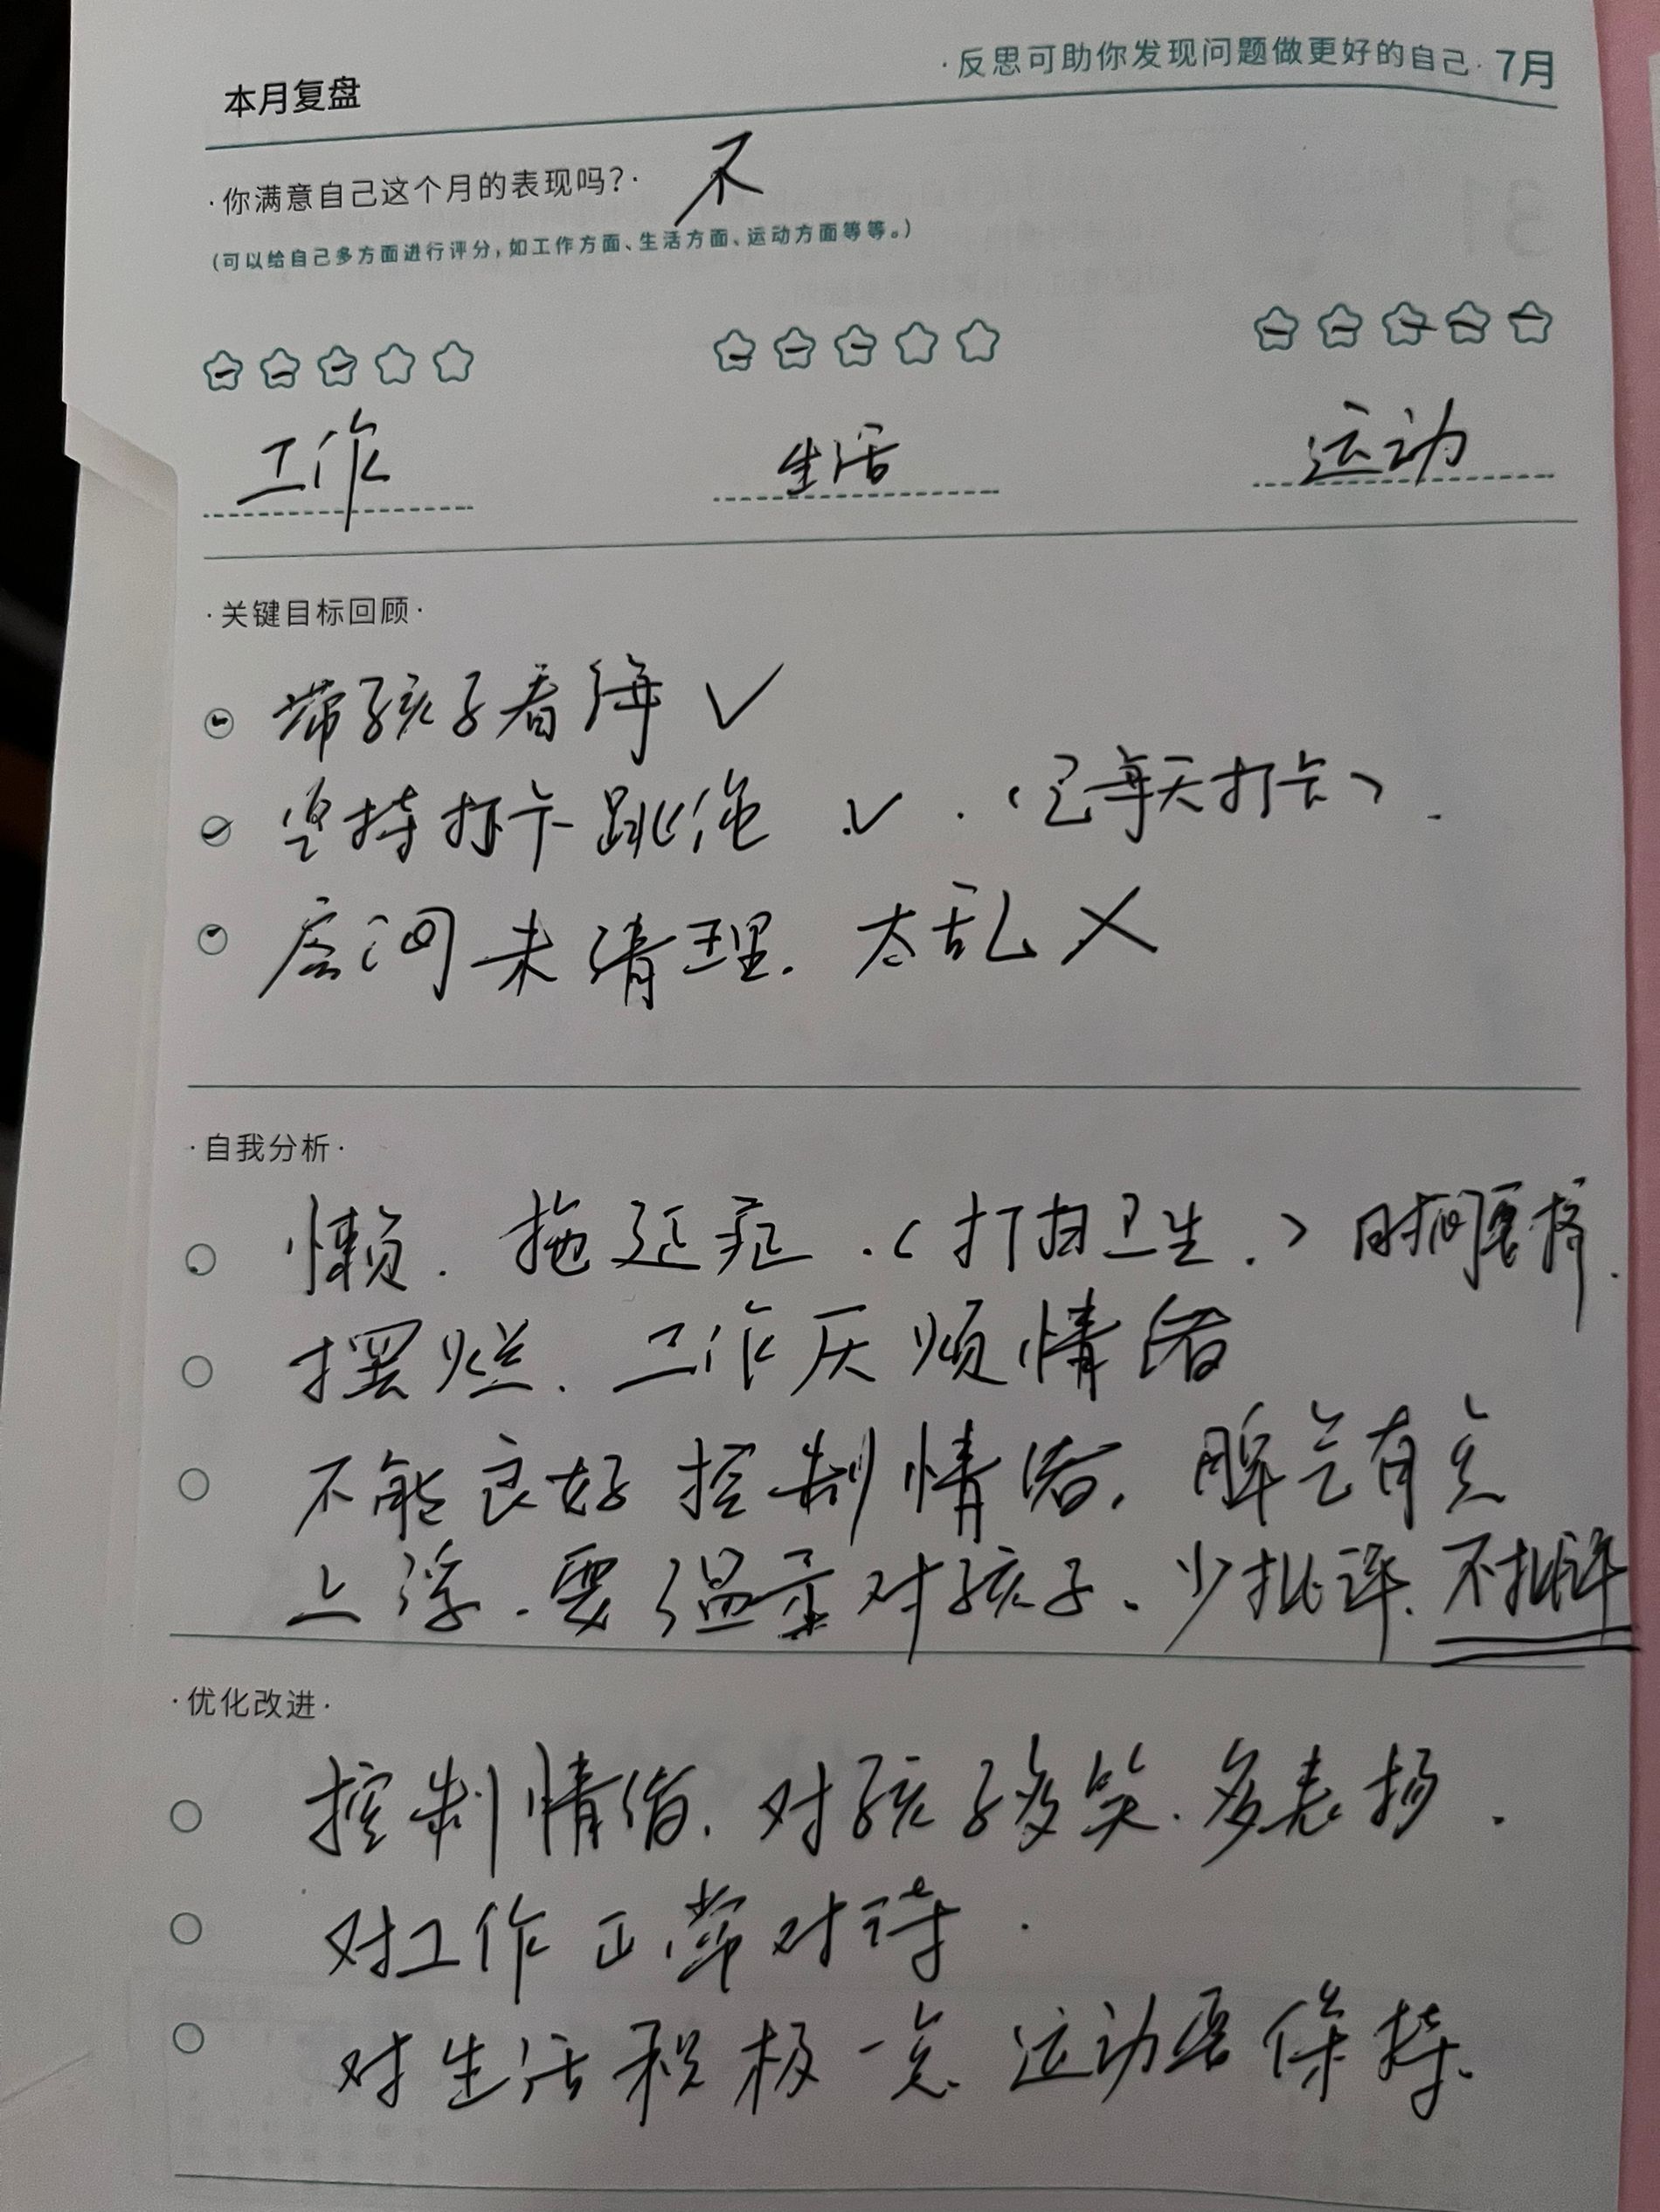 ·反思可助你发现问题做更好的自己· 7月
本月复盘
·你满意自己这个月的表现吗?· 不
(可以给自己多方面进行评分,如工作方面、生活方面、运动方面等等。)
工作 生活 运动
·关键目标回顾·
带孩子看海 ✓
坚持打卡跳绳 ✓.(已每天打卡).
房间未清理. 太乱 ✗
·自我分析·
懒. 拖延症.(打扫卫生.)时间要挤.
摆烂. 工作厌烦情绪
不能良好控制情绪. 脾气有点
上浮. 要温柔对孩子. 少批评. 不批评
·优化改进·
控制情绪. 对孩子多笑. 多表扬.
对工作正常对待.
对生活积极一点 运动要保持.